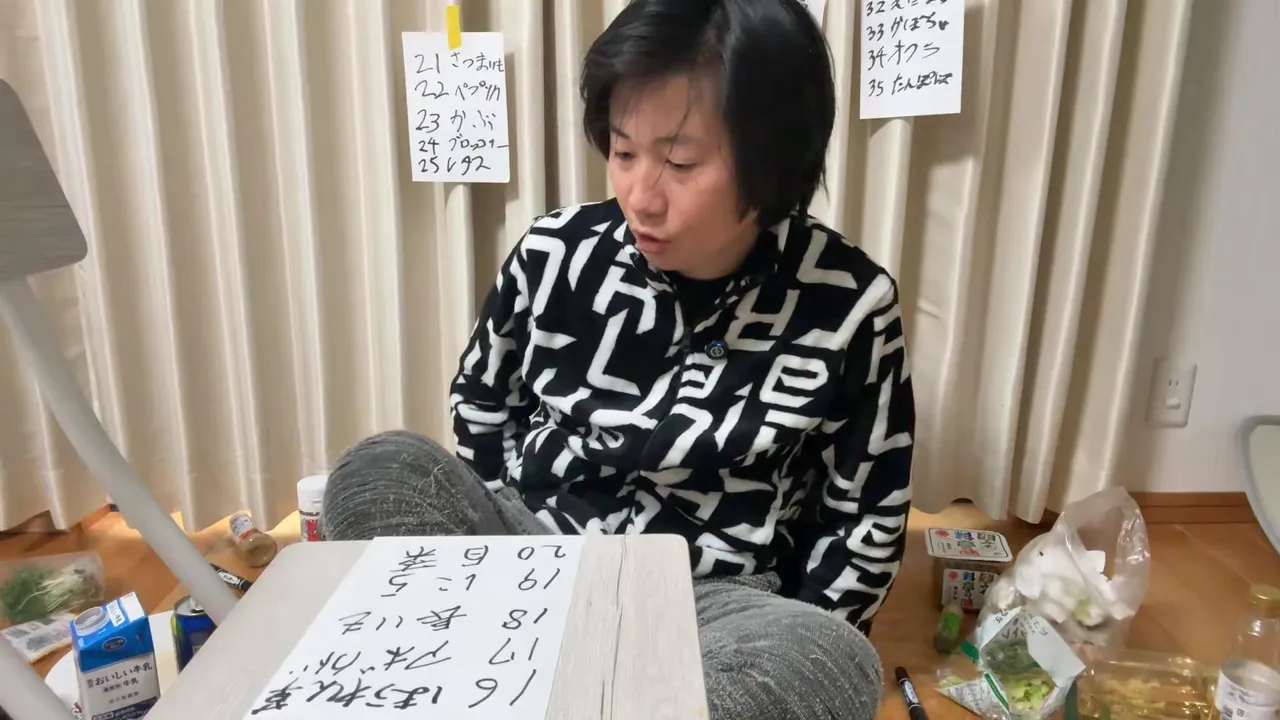 21 さつまいも
22 パプリカ
23 かぶ
24 ブロッコリー
25 レタス
33 かぼちゃ
34 オクラ
35 たんぽぽ
16 ほうれん草
17 アボカド
18 長いも
19 にら
20 白菜
おいしい牛乳